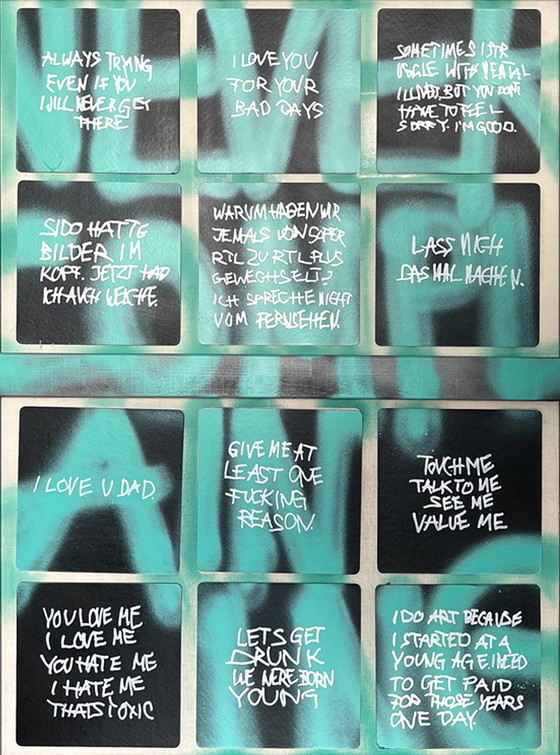 ALWAYS TRYING
EVEN IF YOU
WILL NEVER GET
THERE
I LOVE YOU
FOR YOUR
BAD DAYS
SOMETIMES I STR
UGGLE WITH MENTAL
ILLNESS BUT YOU DON'T
HAVE TO FEEL
SORRY. I'M GOOD.
SIDO HATTE
BILDER IM
KOPF. JETZT HAB
ICH AUCH WELCHE.
WARUM HABEN WIR
JEMALS VON SUPER
RTL ZU RTL PLUS
GEWECHSELT?
ICH SPRECHE NICHT
VOM FERNSEHEN.
LASS MICH
DAS MAL MACHEN.
I LOVE U DAD.
GIVE ME AT
LEAST ONE
FUCKING
REASON.
TOUCH ME
TALK TO ME
SEE ME
VALUE ME
YOU LOVE ME
I LOVE ME
YOU HATE ME
I HATE ME
THATS TOXIC
LETS GET
DRUNK
WE WERE BORN
YOUNG
I DO ART BECAUSE
I STARTED AT A
YOUNG AGE. I NEED
TO GET PAID
FOR THOSE YEARS
ONE DAY.